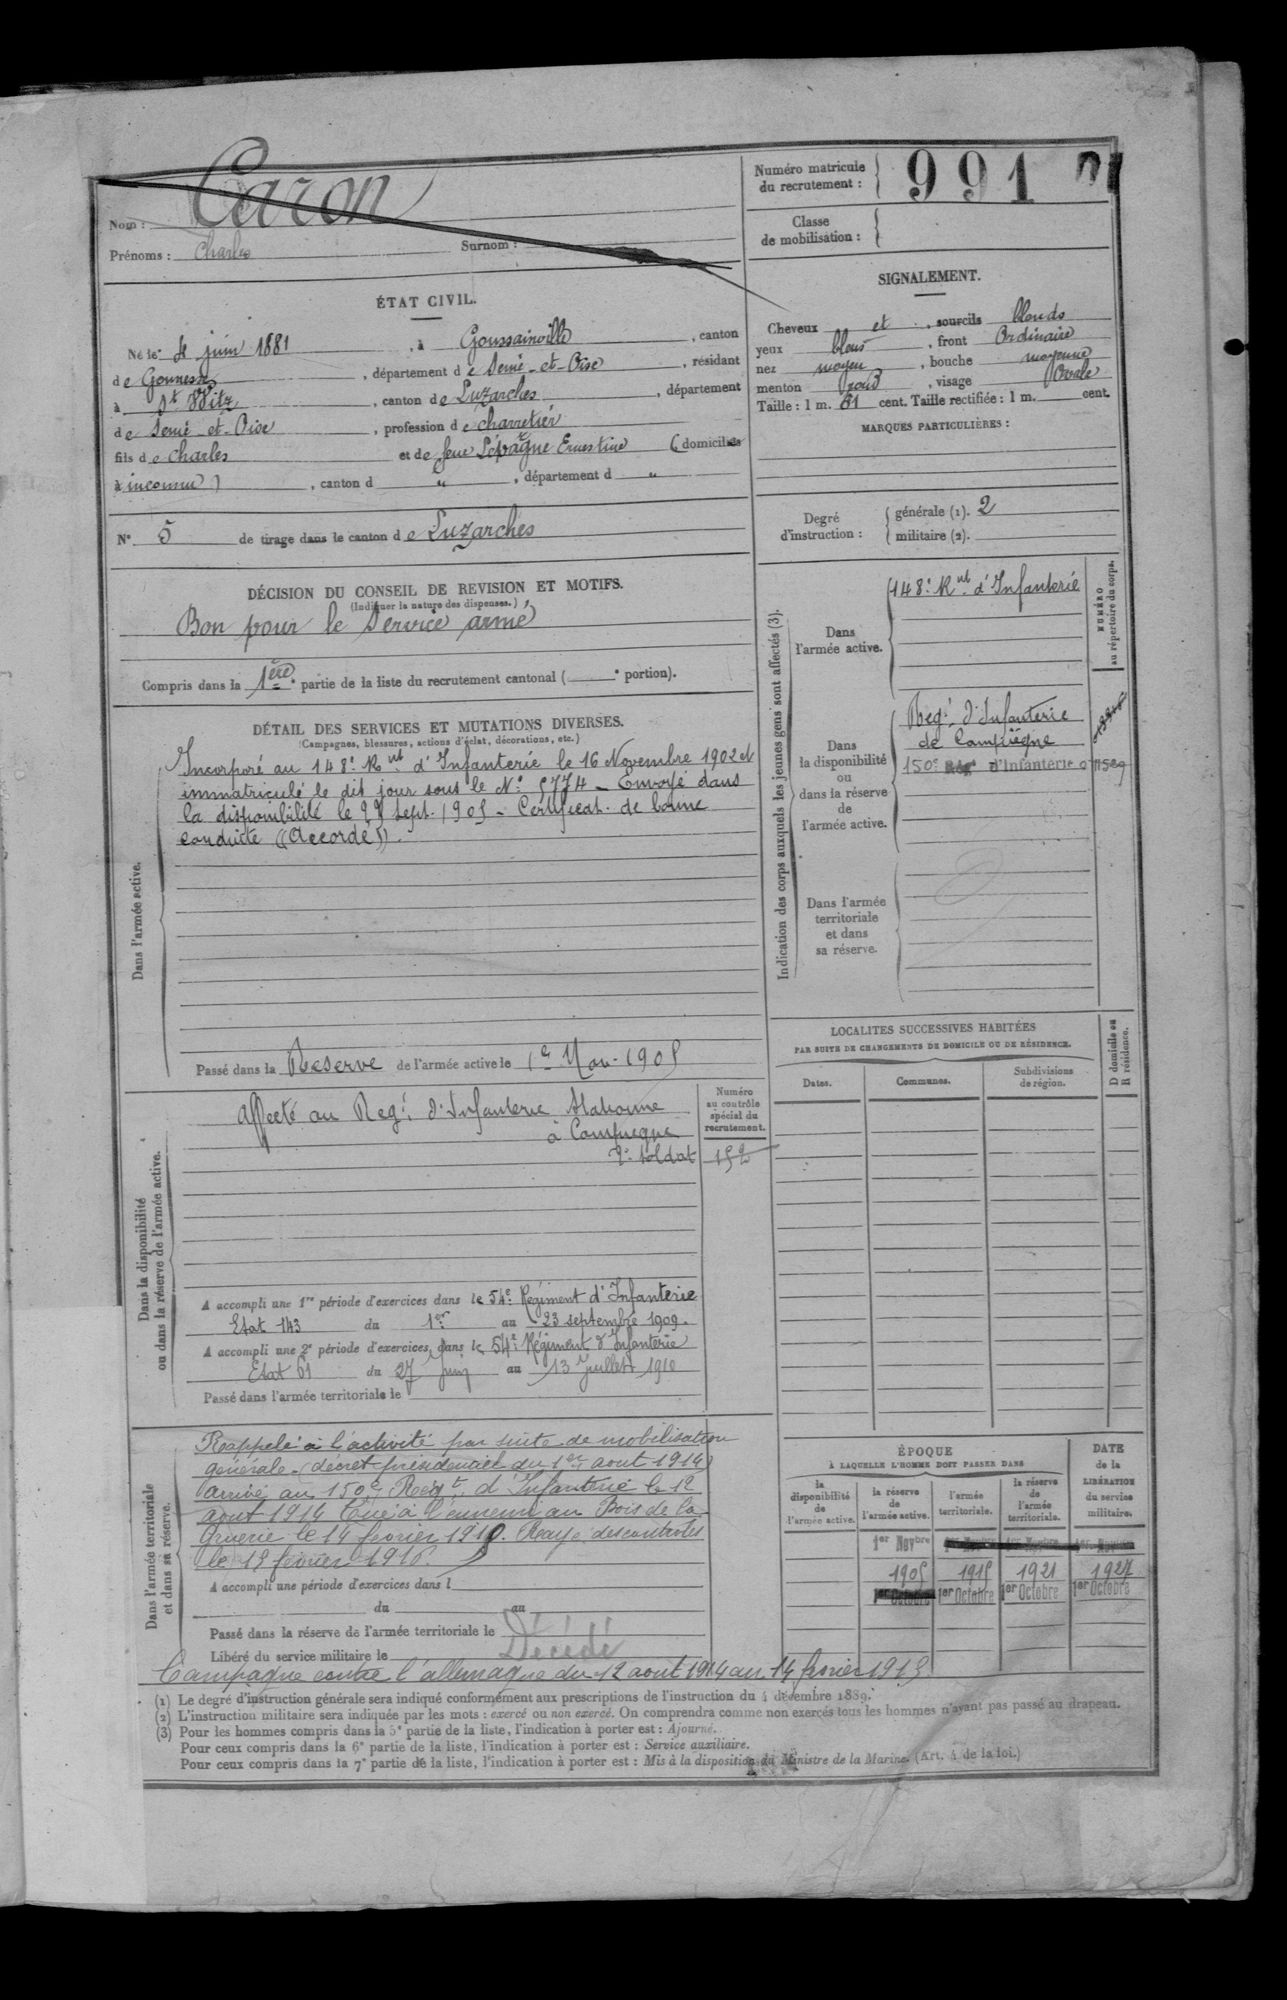 Nom : Caron
Prénoms : Charles Surnom :
Numéro matricule du recrutement : 991
Classe de mobilisation :
ÉTAT CIVIL.
Né le 4 juin 1881, à Goussainville, canton
de Gonesse, département de Seine-et-Oise, résidant
à St Witz, canton de Luzarches, département
de Seine-et-Oise, profession de charretier
fils de Charles et de feue Lépagne Ernestine (domiciliés
à inconnu), canton d " , département d "
N° 5 de tirage dans le canton de Luzarches
SIGNALEMENT.
Cheveux et, sourcils blonds
yeux bleus, front Ordinaire
nez moyen, bouche moyenne
menton rond, visage Ovale
Taille : 1 m. 61 cent. Taille rectifiée : 1 m. cent.
MARQUES PARTICULIÈRES :
Degré d'instruction : générale (1). 2
militaire (2).
DÉCISION DU CONSEIL DE REVISION ET MOTIFS.
(Indiquer la nature des dispenses.)
Bon pour le Service armé
Compris dans la 1ère partie de la liste du recrutement cantonal ( e portion).
DÉTAIL DES SERVICES ET MUTATIONS DIVERSES.
(Campagnes, blessures, actions d'éclat, décorations, etc.)
Dans l'armée active.
Incorporé au 148e Rnt d'Infanterie le 16 Novembre 1902 et
immatriculé le dit jour sous le N° 5774 - Envoyé dans
la disponibilité le 22 Sept. 1905 - Certificat de bonne
conduite "Accordé".
Passé dans la Réserve de l'armée active le 1er Nov. 1905
Dans la disponibilité
ou dans la réserve de l'armée active.
Numéro
au contrôle
spécial du
recrutement.
Affecté au Regt d'Infanterie Stationné
à Compiegne
2e soldat 152
A accompli une 1re période d'exercices dans le 54e Régiment d'Infanterie
Etat 143 du 1er au 23 septembre 1909.
A accompli une 2e période d'exercices dans le 54e Régiment d'Infanterie
Etat 61 du 27 Juin au 13 Juillet 1910
Passé dans l'armée territoriale le
Dans l'armée territoriale
et dans sa réserve.
Rappelé à l'activité par suite de mobilisation
générale (décret présidentiel du 1er aout 1914)
arrivé au 150e Regt d'Infanterie le 12
aout 1914 Tué à l'ennemi au Bois de la
Gruerie le 14 fevrier 1915. Rayé des controles
le 15 fevrier 1915.
A accompli une période d'exercices dans l
du au
Passé dans la réserve de l'armée territoriale le
Libéré du service militaire le Décédé
Campagne contre l'allemagne du 12 aout 1914 au 14 fevrier 1915.
Indication des corps auxquels les jeunes gens sont affectés (3).
NUMÉRO
au répertoire du corps.
Dans
l'armée active.
148e Rnt d'Infanterie
Dans
la disponibilité
ou
dans la réserve
de
l'armée active.
Regt d'Infanterie
de Compiègne
150e Regt d'Infanterie
Dans l'armée
territoriale
et dans
sa réserve.
LOCALITES SUCCESSIVES HABITÉES
PAR SUITE DE CHANGEMENTS DE DOMICILE OU DE RÉSIDENCE.
Dates. Communes. Subdivisions
de région.
D domicile ou
R résidence.
ÉPOQUE
À LAQUELLE L'HOMME DOIT PASSER DANS
la disponibilité de l'armée active.
la réserve de l'armée active.
l'armée territoriale.
la réserve de l'armée territoriale.
DATE de la LIBÉRATION du service militaire.
1er Novbre 1er Novbre 1er Novbre 1er Novbre
1905 1915 1921 1927
1er Octobre 1er Octobre 1er Octobre 1er Octobre
(1) Le degré d'instruction générale sera indiqué conformément aux prescriptions de l'instruction du 4 décembre 1889.
(2) L'instruction militaire sera indiquée par les mots : exercé ou non exercé. On comprendra comme non exercés tous les hommes n'ayant pas passé au drapeau.
(3) Pour les hommes compris dans la 5e partie de la liste, l'indication à porter est : Ajourné.
Pour ceux compris dans la 6e partie de la liste, l'indication à porter est : Service auxiliaire.
Pour ceux compris dans la 7e partie de la liste, l'indication à porter est : Mis à la disposition du Ministre de la Marine. (Art. 4 de la loi.)